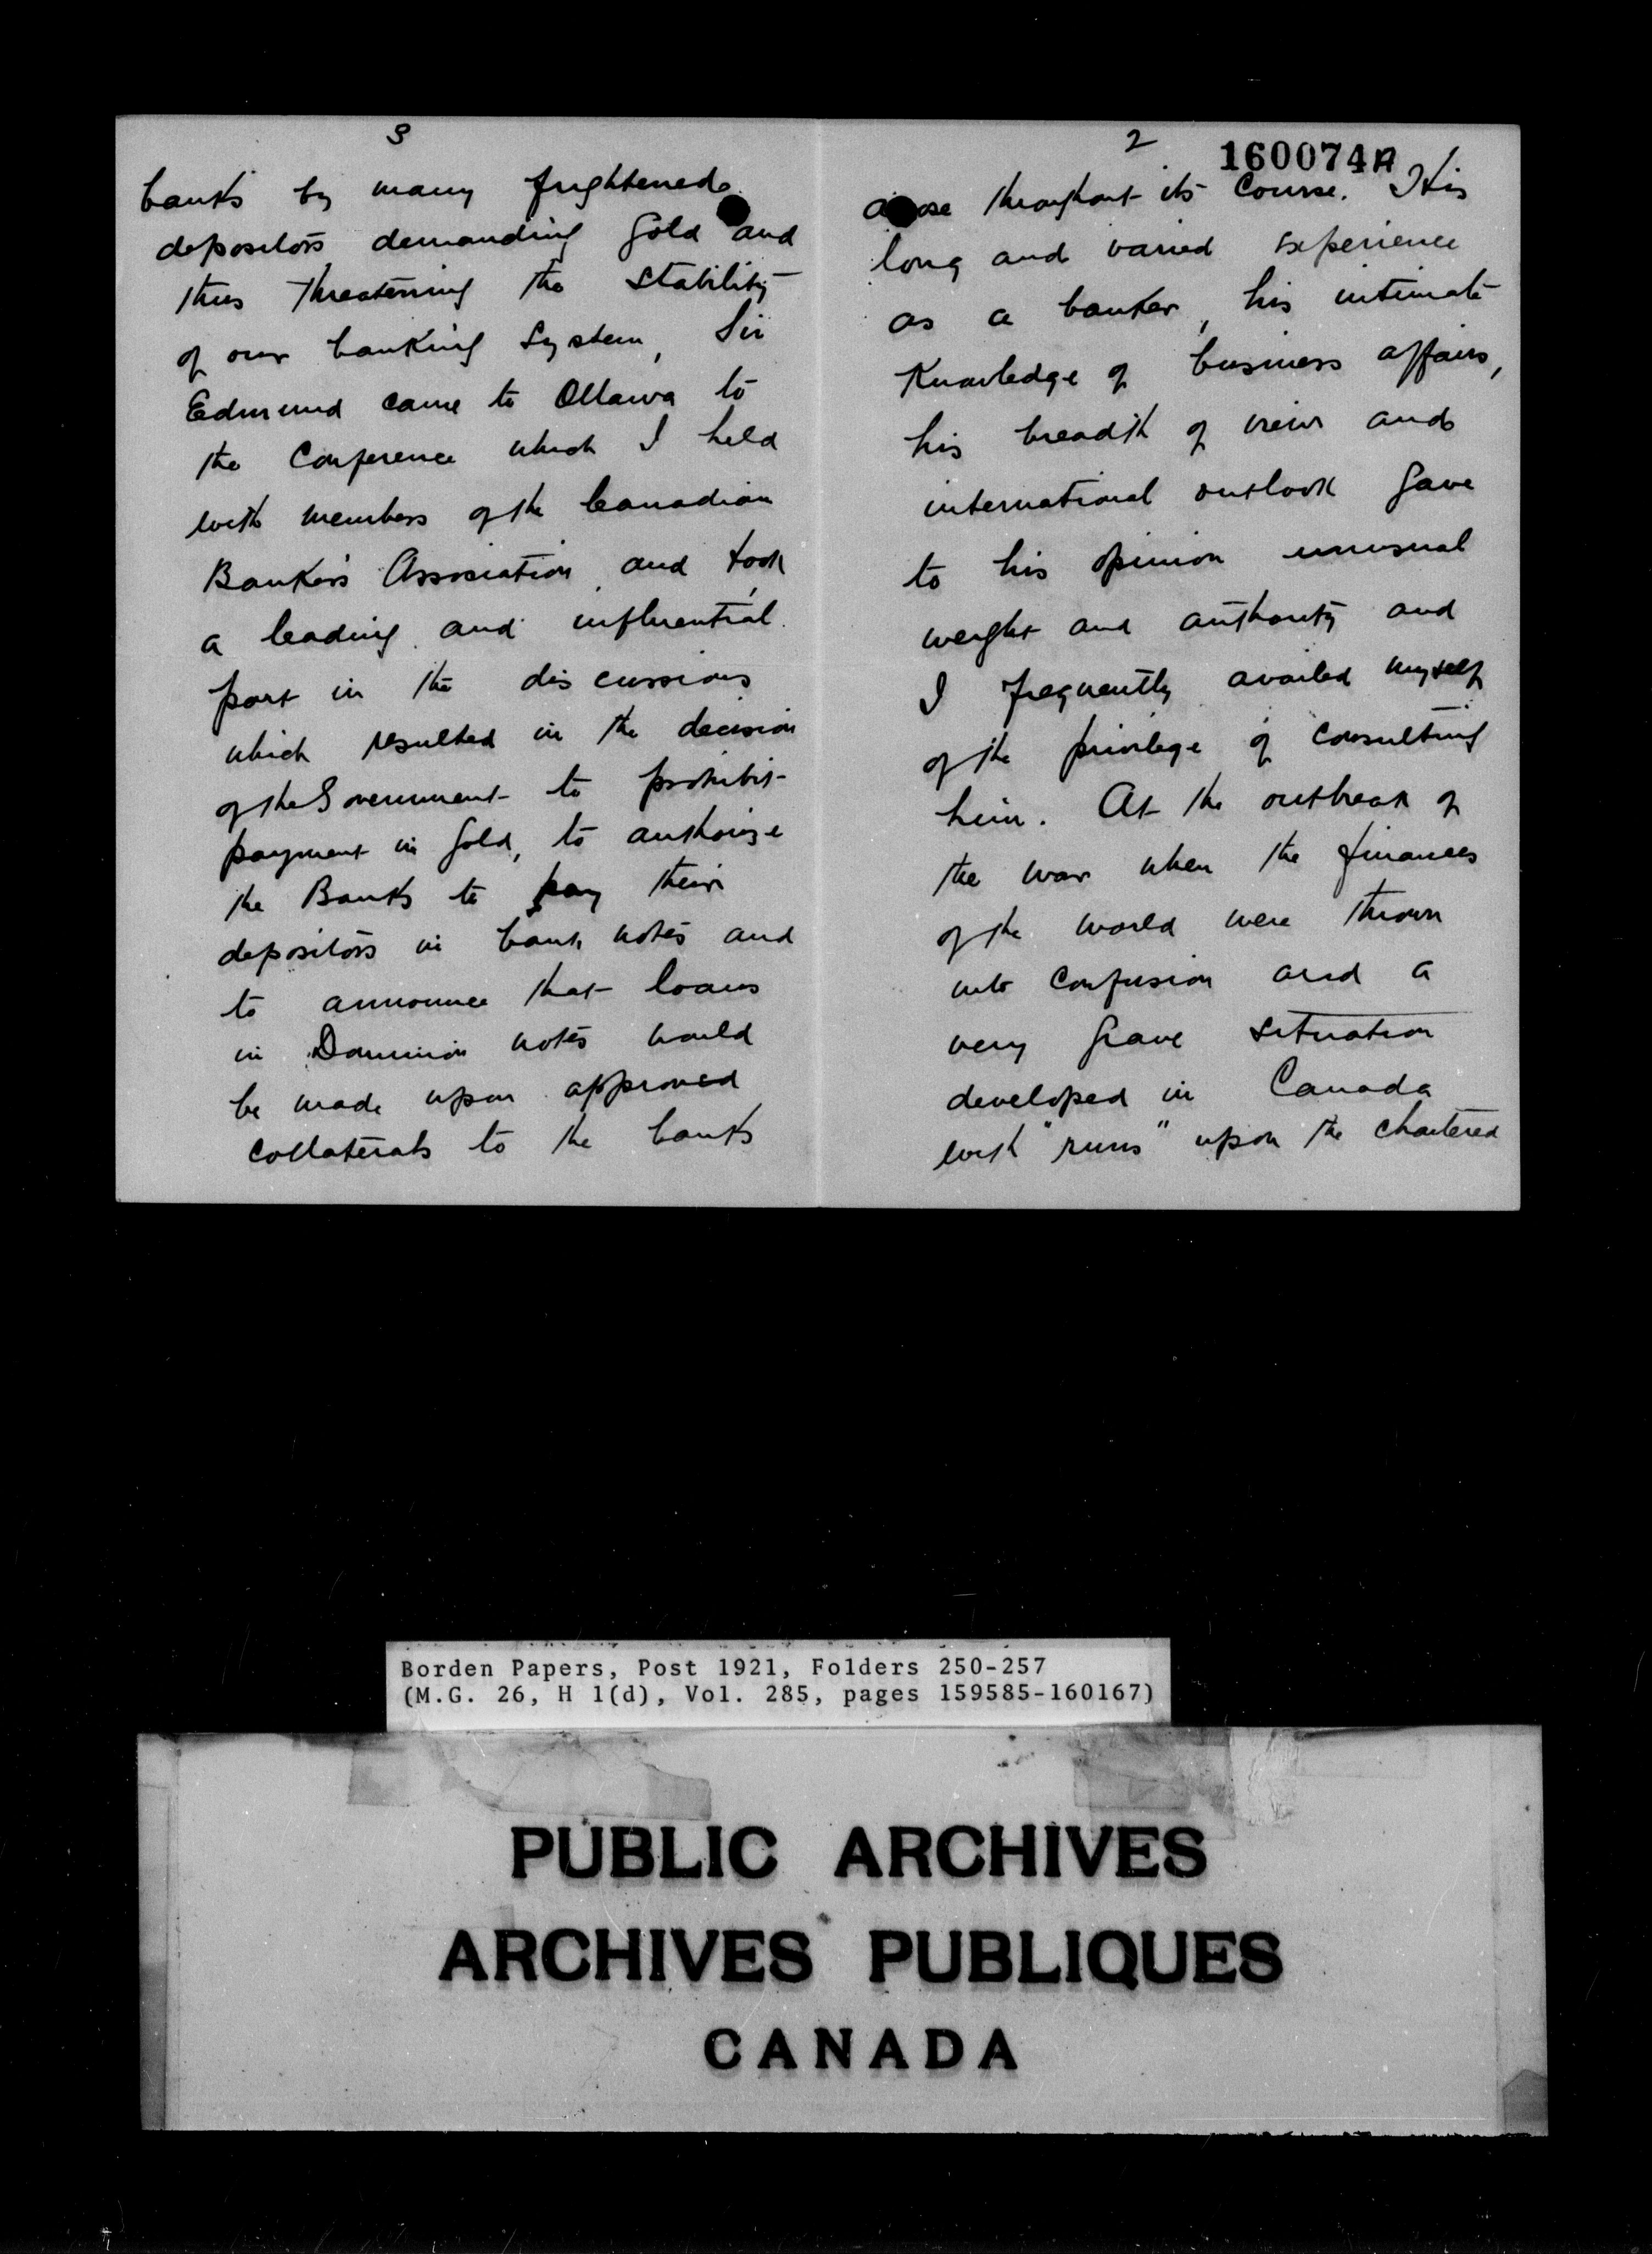 3
banks by many frightened
depositors demanding gold and
thus threatening the stability
of our banking system, Sir
Edmund came to Ottawa to
the Conference which I held
with members of the Canadian
Banker's Association, and took
a leading and influential
part in the discussions
which resulted in the decision
of the Government to prohibit
payment in gold, to authorize
the Banks to pay their
depositors in bank notes and
to announce that loans
in Dominion notes would
be made upon approved
collaterals to the banks
2
160074A
arose throughout its course. His
long and varied experience
as a banker, his intimate
knowledge of business affairs,
his breadth of view and
international outlook gave
to his opinion unusual
weight and authority and
I frequently availed myself
of the privilege of consulting
him. At the outbreak of
the war when the finances
of the world were thrown
into confusion and a
very grave situation
developed in Canada
with "runs" upon the chartered
Borden Papers, Post 1921, Folders 250-257
(M.G. 26, H 1(d), Vol. 285, pages 159585-160167)
PUBLIC ARCHIVES
ARCHIVES PUBLIQUES
CANADA